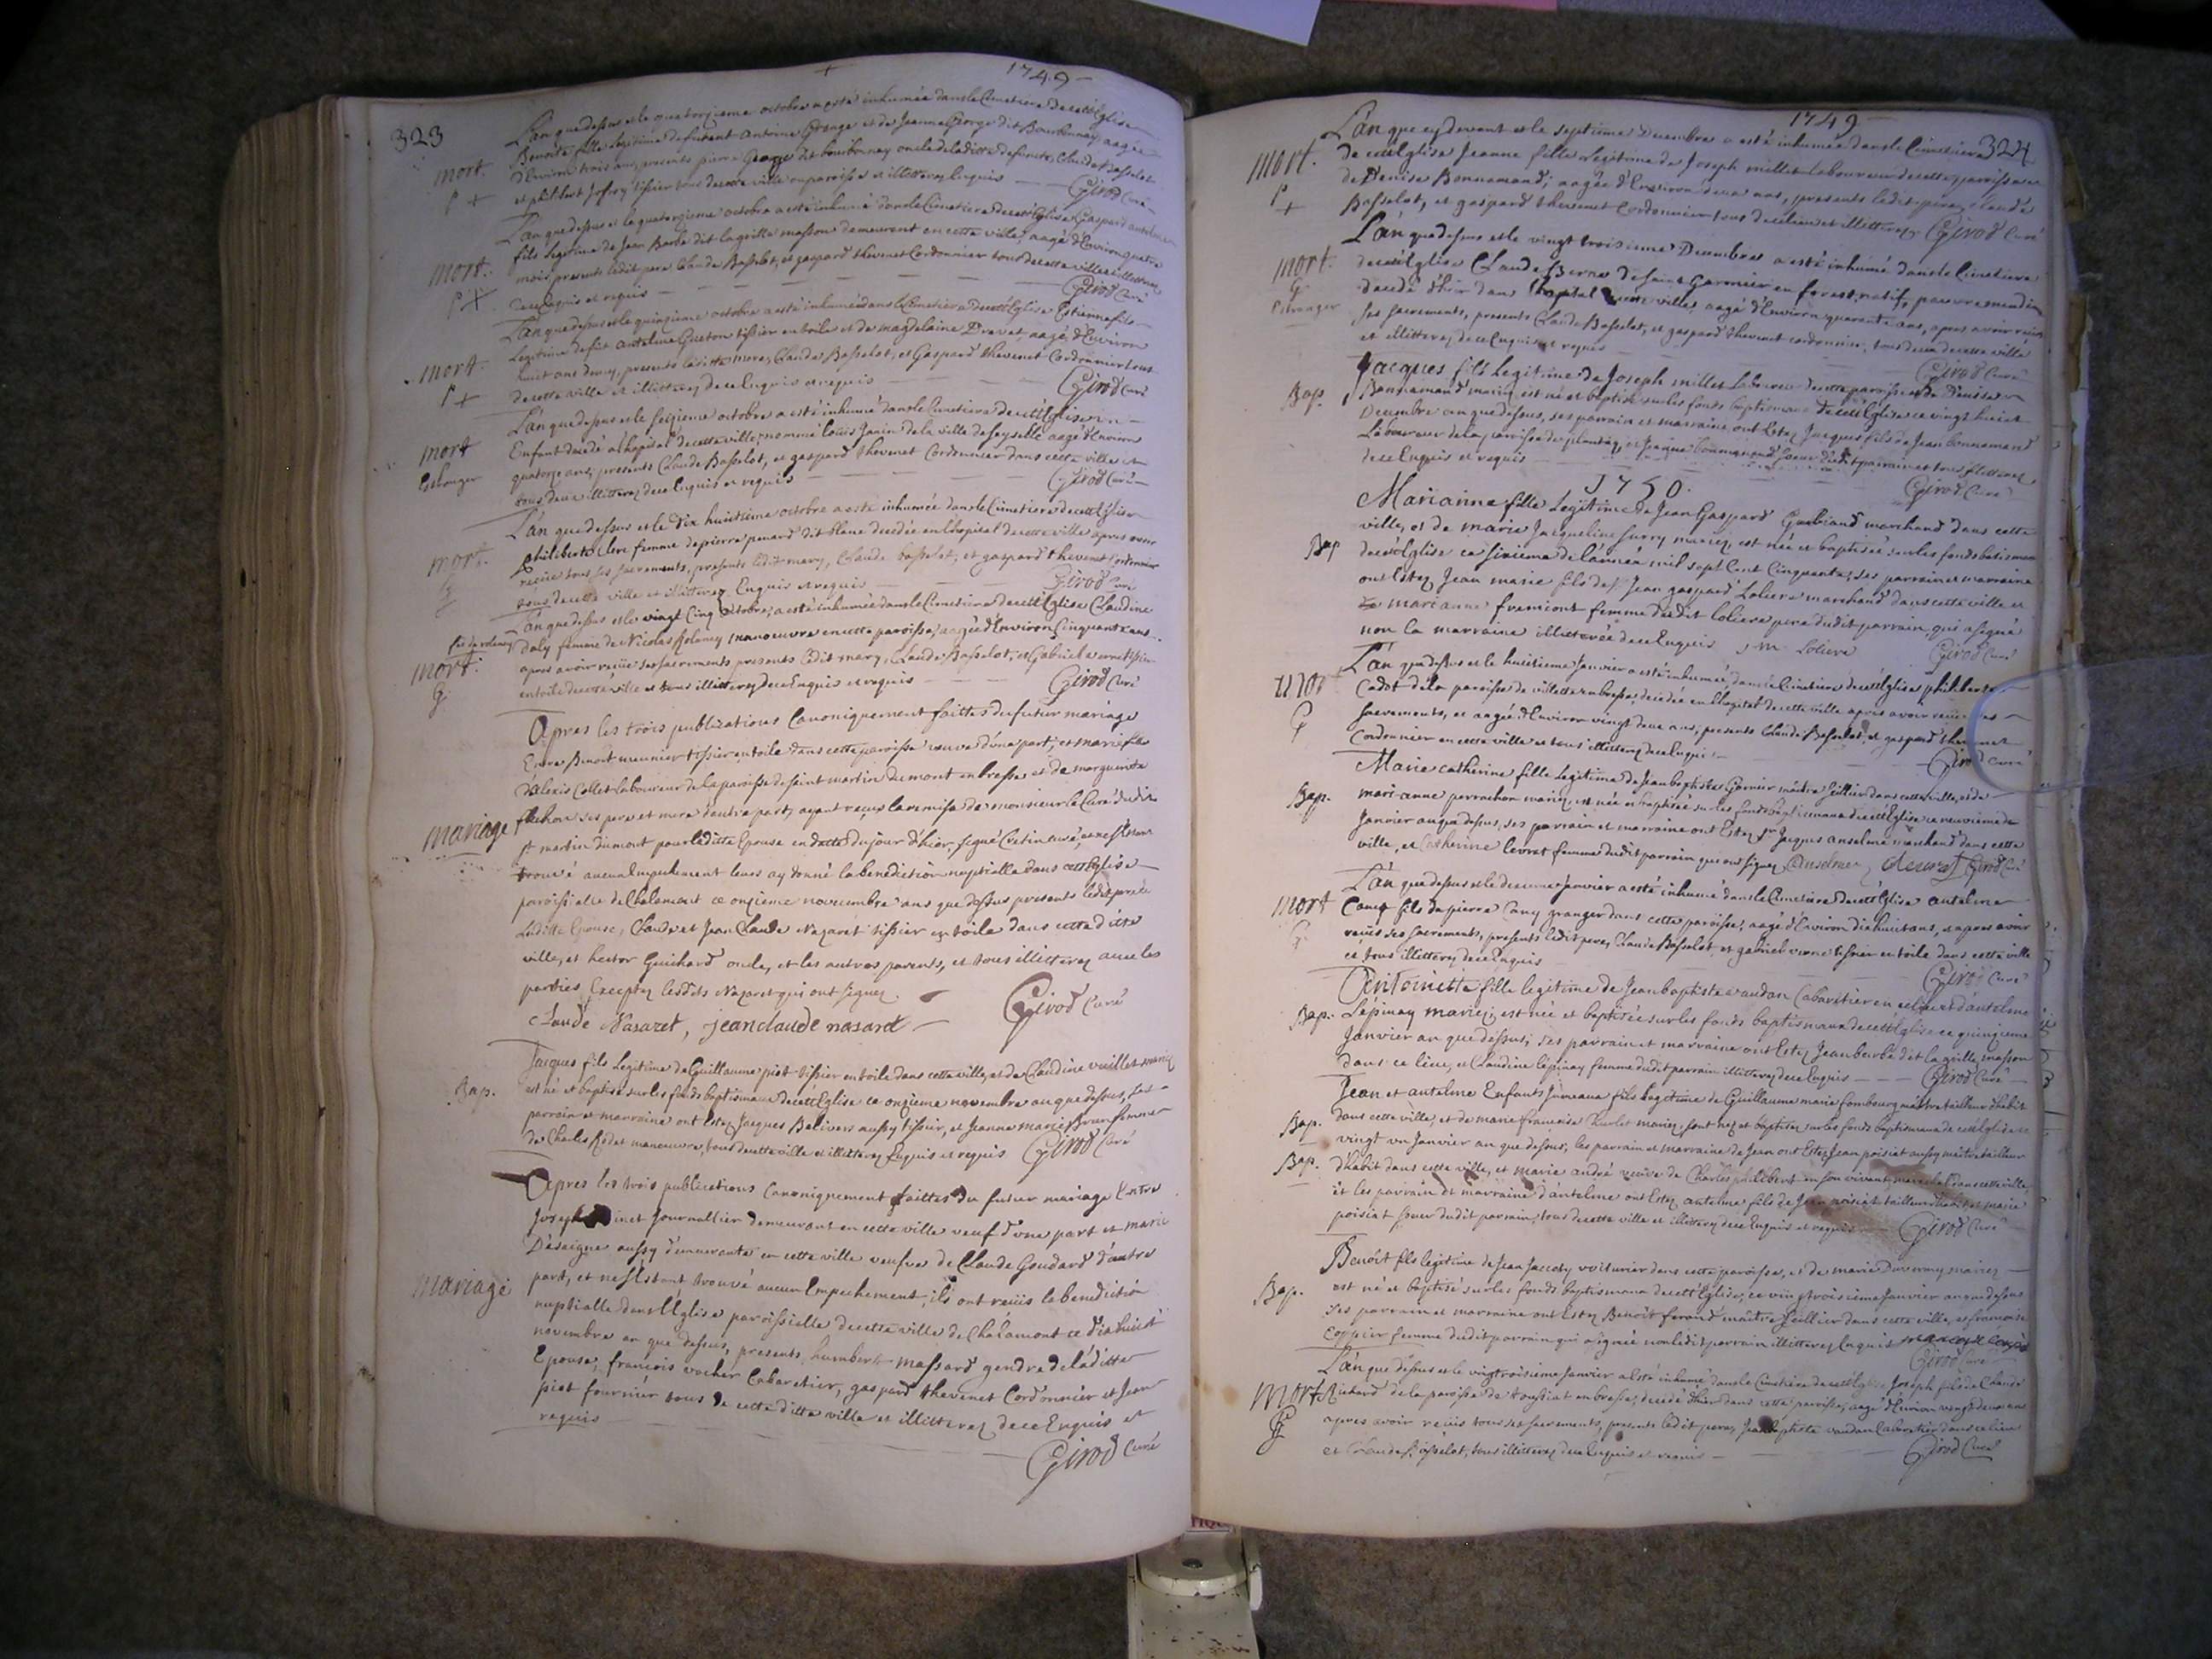 1749
323
L'an que dessus et le quatorzieme octobre a esté inhumée dans le Cimetiere de cett Eglise
Benoite fille Legitime de furent Antoine Grange et de Jeanne George dit Bourbonnay aagée
mort. d'Environ trois ans, presents pierre George dit bourbonnay oncle de laditte defuncte, Claude Basselot
P + et philibert Jofroy tissier tous de cette ville ou paroisse et illitterez Enquis Girod Curé
L'an que dessus et le quatorzieme octobre a esté inhumé dans le Cimetiere de cett Eglise Gaspard antelme
fils Legitime de Jean Barbe dit lagrille masson demeurent en cette ville, aagé d'Environ quatre
mort. mois, presents ledit pere Claude Basselot, et gaspard thevenet Cordonnier tous de cette ville illitterez
P + de ce Enquis et requis Girod Curé
L'an que dessus et le quinzieme octobre a esté inhumé dans le Cimetiere de cett Eglise Estienne fils
Legitime de fût antelme Gueton tissier en toile et de magdelaine Drevet, aagé d'Environ
mort. huit ans demy, presents laditte mere, Claude Basselot, et Gaspard thevenet Cordonnier tous
P + de cette ville et illitterez de ce Enquis et requis Girod Curé
L'an que dessus et le seizieme octobre a esté inhumé dans le Cimetiere de cett Eglise un
mort Enfant decedé à l'hopital de cette ville, nommé loüis Janin de la ville de seyselle aagé d'Environ
Estranger quatorze ans, presents Claude Basselot, et gaspard thevenet Cordonnier dans cette ville et
tous deux illitterez de ce Enquis et requis Girod Curé
L'an que dessus et le Dix huitieme octobre a esté inhumée dans le Cimetiere de cett Eglise
philiberte Clerc femme de pierre penard dit blanc decedée en l'hopital de cette ville apres avoir
mort. reciie tous ses sacrements, presents ledit mary, Claude basselot, et gaspard thevenet Cordonnier
G tous de cette ville et illitterez Enquis et requis Girod Curé
L'an que dessus et le vingt Cinq octobre, a esté inhumée dans le Cimetiere de cett Eglise Claudine
Daly femme de Nicolas Rolamy manoeuvre en cette paroisse, aagée d'Environ Cinquante ans
mort. apres avoir reciie ses sacrements presents ledit mary, Claude Basselot, et Gabriel verne tissier
G. en toile de cette ville et tous illitterez de ce Enquis et requis Girod Curé
Apres les trois publications Canoniquement faittes du futur mariage
Entre Benoit meunier tissier en toile dans cette paroisse veuve d'une part, et marie fille
d'alexis Collet laboureur de la paroisse de saint martin dumont en bresse et de marguerite
fluhon ses pere et mere d'autre part, ayant reçus la remise de monsieur le Curé dudit
mariage st martin dumont pour laditte Epouse en datte du jour d'hier, signé Cretin curé, et ne s'Estant
trouvé aucun Empechement leurs ay donné la benediction nuptialle dans cett Eglise
paroissielle de Chalamont ce onzieme novembre ans que dessus presents ledit pere de
laditte Epouse, Claude et Jean Claude Nazaret tissier en toile dans cette ditte
ville, et hector Guichard oncle, et les autres parents, et tous illitterez avec les
parties Exceptez lesdits Nazaret qui ont signez. Girod Curé
Claude Nasaret, jean claude nasaret
Jacques fils Legitime de Guillaume piot tissier en toile dans cette ville, et de Claudine vuillet mariez
Bap. est né et baptisé sur les fonds baptismaux de cett Eglise ce onzieme novembre an que dessus, ses
parrain et marraine ont Estez Jacques Belivers aussy tissier, et Jeanne marie Brun femme
de Charles Rodet manoeuvre, tous de cette ville et illitterez Enquis et requis Girod Curé
Apres les trois publications Canoniquement faittes du futur mariage Entre
Joseph inet Journallier demeurant en cette ville veuf d'une part et marie
Desaigne aussy demeurante en cette ville veufve de Claude Goudard d'autre
mariage part, et ne s'Estant trouvé aucun Empechement, ils ont reciis la benediction
nuptialle dans l'Eglise paroissielle de cette ville de Chalamont ce dixhuict
novembre an que dessus, presents, humbert massard gendre de laditte
Epouse, francois vocher Cabaretier, gaspard thevenet Cordonnier et Jean
piot fournier tous de cette ditte ville et illitterez de ce Enquis et
requis Girod Curé
1749
324
L'an que cy devant et le septieme Decembre a esté inhumée dans le Cimetiere
mort. de cett Eglise Jeanne fille Legitime de Joseph millet laboureur de cette paroisse et
P de Denise Bonnamand; aagée d'Environ deux ans, presents ledit pere, Claude
+ Basselot, et gaspard thevenet Cordonnier tous de ce lieu et illitterez Girod Curé
L'an que dessus et le vingt troisieme Decembre a esté inhumé dans le Cimetiere
mort. de cett Eglise Claude Berne de saint Garmier en forest natif, pauvre mendiant
G. decedé d'hier dans l'hopital de cette ville, aagé d'Environ quarante ans, apres avoir reciie
Estranger ses sacrements, presents Claude Basselot, et gaspard thevenet cordonnier, tous deux de cette ville
et illitterez de ce Enquis et requis Girod Curé
Jacques fils Legitime de Joseph millet laboureur de cette paroisse et de Denise
Bap. Bonnamand mariez est né et baptisé sur les fonds baptismaux de cett Eglise ce vingt huict
Decembre an que dessus, ses parrain et marraine ont Estez Jacques fils de Jean bonnamand
Laboureur de la paroisse du plantay, et Jeanne bonnamand soeur dudit parrain et tous illitterez
de ce Enquis et requis Girod Curé
1750.
Marianne fille Legitime de Jean Gaspard Guerbiand marchand dans cette
ville, et de marie Jacqueline surry mariez est née et baptisée sur les fonds batismaux
Bap de cett Eglise ce sixieme de l'année mil sept Cent Cinquante, ses parrain et marraine
ont Estez Jean marie fils de sr Jean gaspard Loliere marchand dans cette ville et
marianne fremiont femme dudit loliere pere dudit parrain, qui a signé
non la marraine illitterée de ce Enquis J M Loliere Girod Curé
L'an que dessus et le huitieme Janvier a esté inhumée dans le Cimetiere de cett Eglise philiberte
mor Cadot de la paroisse de villette en bresse, decedée en l'hopital de cette ville apres avoir reciie ses
G sacrements, et aagée d'Environ vingt deux ans, presents Claude Basselot, et gaspard thevenet
Cordonnier en cette ville et tous illitterez de ce Enquis Girod Curé
Marie catherine fille Legitime de Jean baptiste Garnier maître sellier dans cette ville, et de
Bap. mari-anne perrachon mariez, est née et baptisée sur les fonds baptismaux de cett Eglise ce neuvieme de
Janvier an que dessus, ses parrain et marraine ont Estez sr Jacques anselme marchand dans cette
ville, et Catherine levrat femme dudit parrain qui ont signez Anselme, Girod Curé
L'an que dessus et le Janvier a esté inhumé dans le Cimetiere de cett Eglise antelme
mort Cany fils de pierre Cany granger dans cette paroisse, aagé d'Environ dix huict ans, et apres avoir
G. reciis ses sacrements, presents ledit pere, Claude Basselot, et gabriel verne tissier en toile dans cette ville
et tous illitterez de ce Enquis Girod Curé
Antoinette fille legitime de Jean baptiste vaudan Cabaretier en ce lieu et d'antelme
Bap. Lépinay mariez, est née et baptisée sur les fonds baptismaux de cett Eglise ce quinzieme
Janvier an que dessus, ses parrain et marraine ont Estez Jean barbe dit la grille, masson
dans ce lieu, et Claudine lépinay femme dudit parrain illitterez de ce Enquis Girod Curé
Jean et antelme Enfants Jumeaux fils legitime de Guillaume marie fombourg maître tailleur d'habit
Bap. dans cette ville, et de marie francoise Charlet mariez, sont nez et baptisez sur les fonds baptismaux de cett Eglise ce
vingt un Janvier an que dessus, les parrain et marraine de Jean ont Estez Jean poisiat aussy maître tailleur
Bap. d'habit dans cette ville, et marie andré veuve de Charles philibert en son vivant marechal dans cette ville
et les parrain et marraine d'antelme ont Estez antelme fils de Jean poisiat tailleur d'habit et marie
poisiat soeur dudit parrain, tous de cette ville et illitterez de ce Enquis et requis Girod Curé
Benoît fils legitime de Jean Jaccoty voiturier dans cette paroisse, et de marie Duvernay mariez
Bap. est né et baptisé sur les fonds baptismaux de cett Eglise, ce vingt troisieme Janvier an que dessus
ses parrain et marraine ont Estez Benoît ferand maître sellier dans cette ville, et francoise
Coppier femme dudit parrain qui a signée non ledit parrain illitterez Enquis
Girod Curé
L'an que dessus et le vingt troisieme Janvier a esté inhumé dans le Cimetiere de cett Eglise Joseph fils de Claude
Mort Richard de la paroisse de toussiat en bresse, decedé d'hier dans cette paroisse, aagé d'Environ vingt deux ans
G apres avoir reciis tous ses sacrements, presents ledit pere, Jean baptiste vaudan Cabaretier dans ce lieu
et Claude Basselot, tous illitterez de ce Enquis et requis Girod Curé